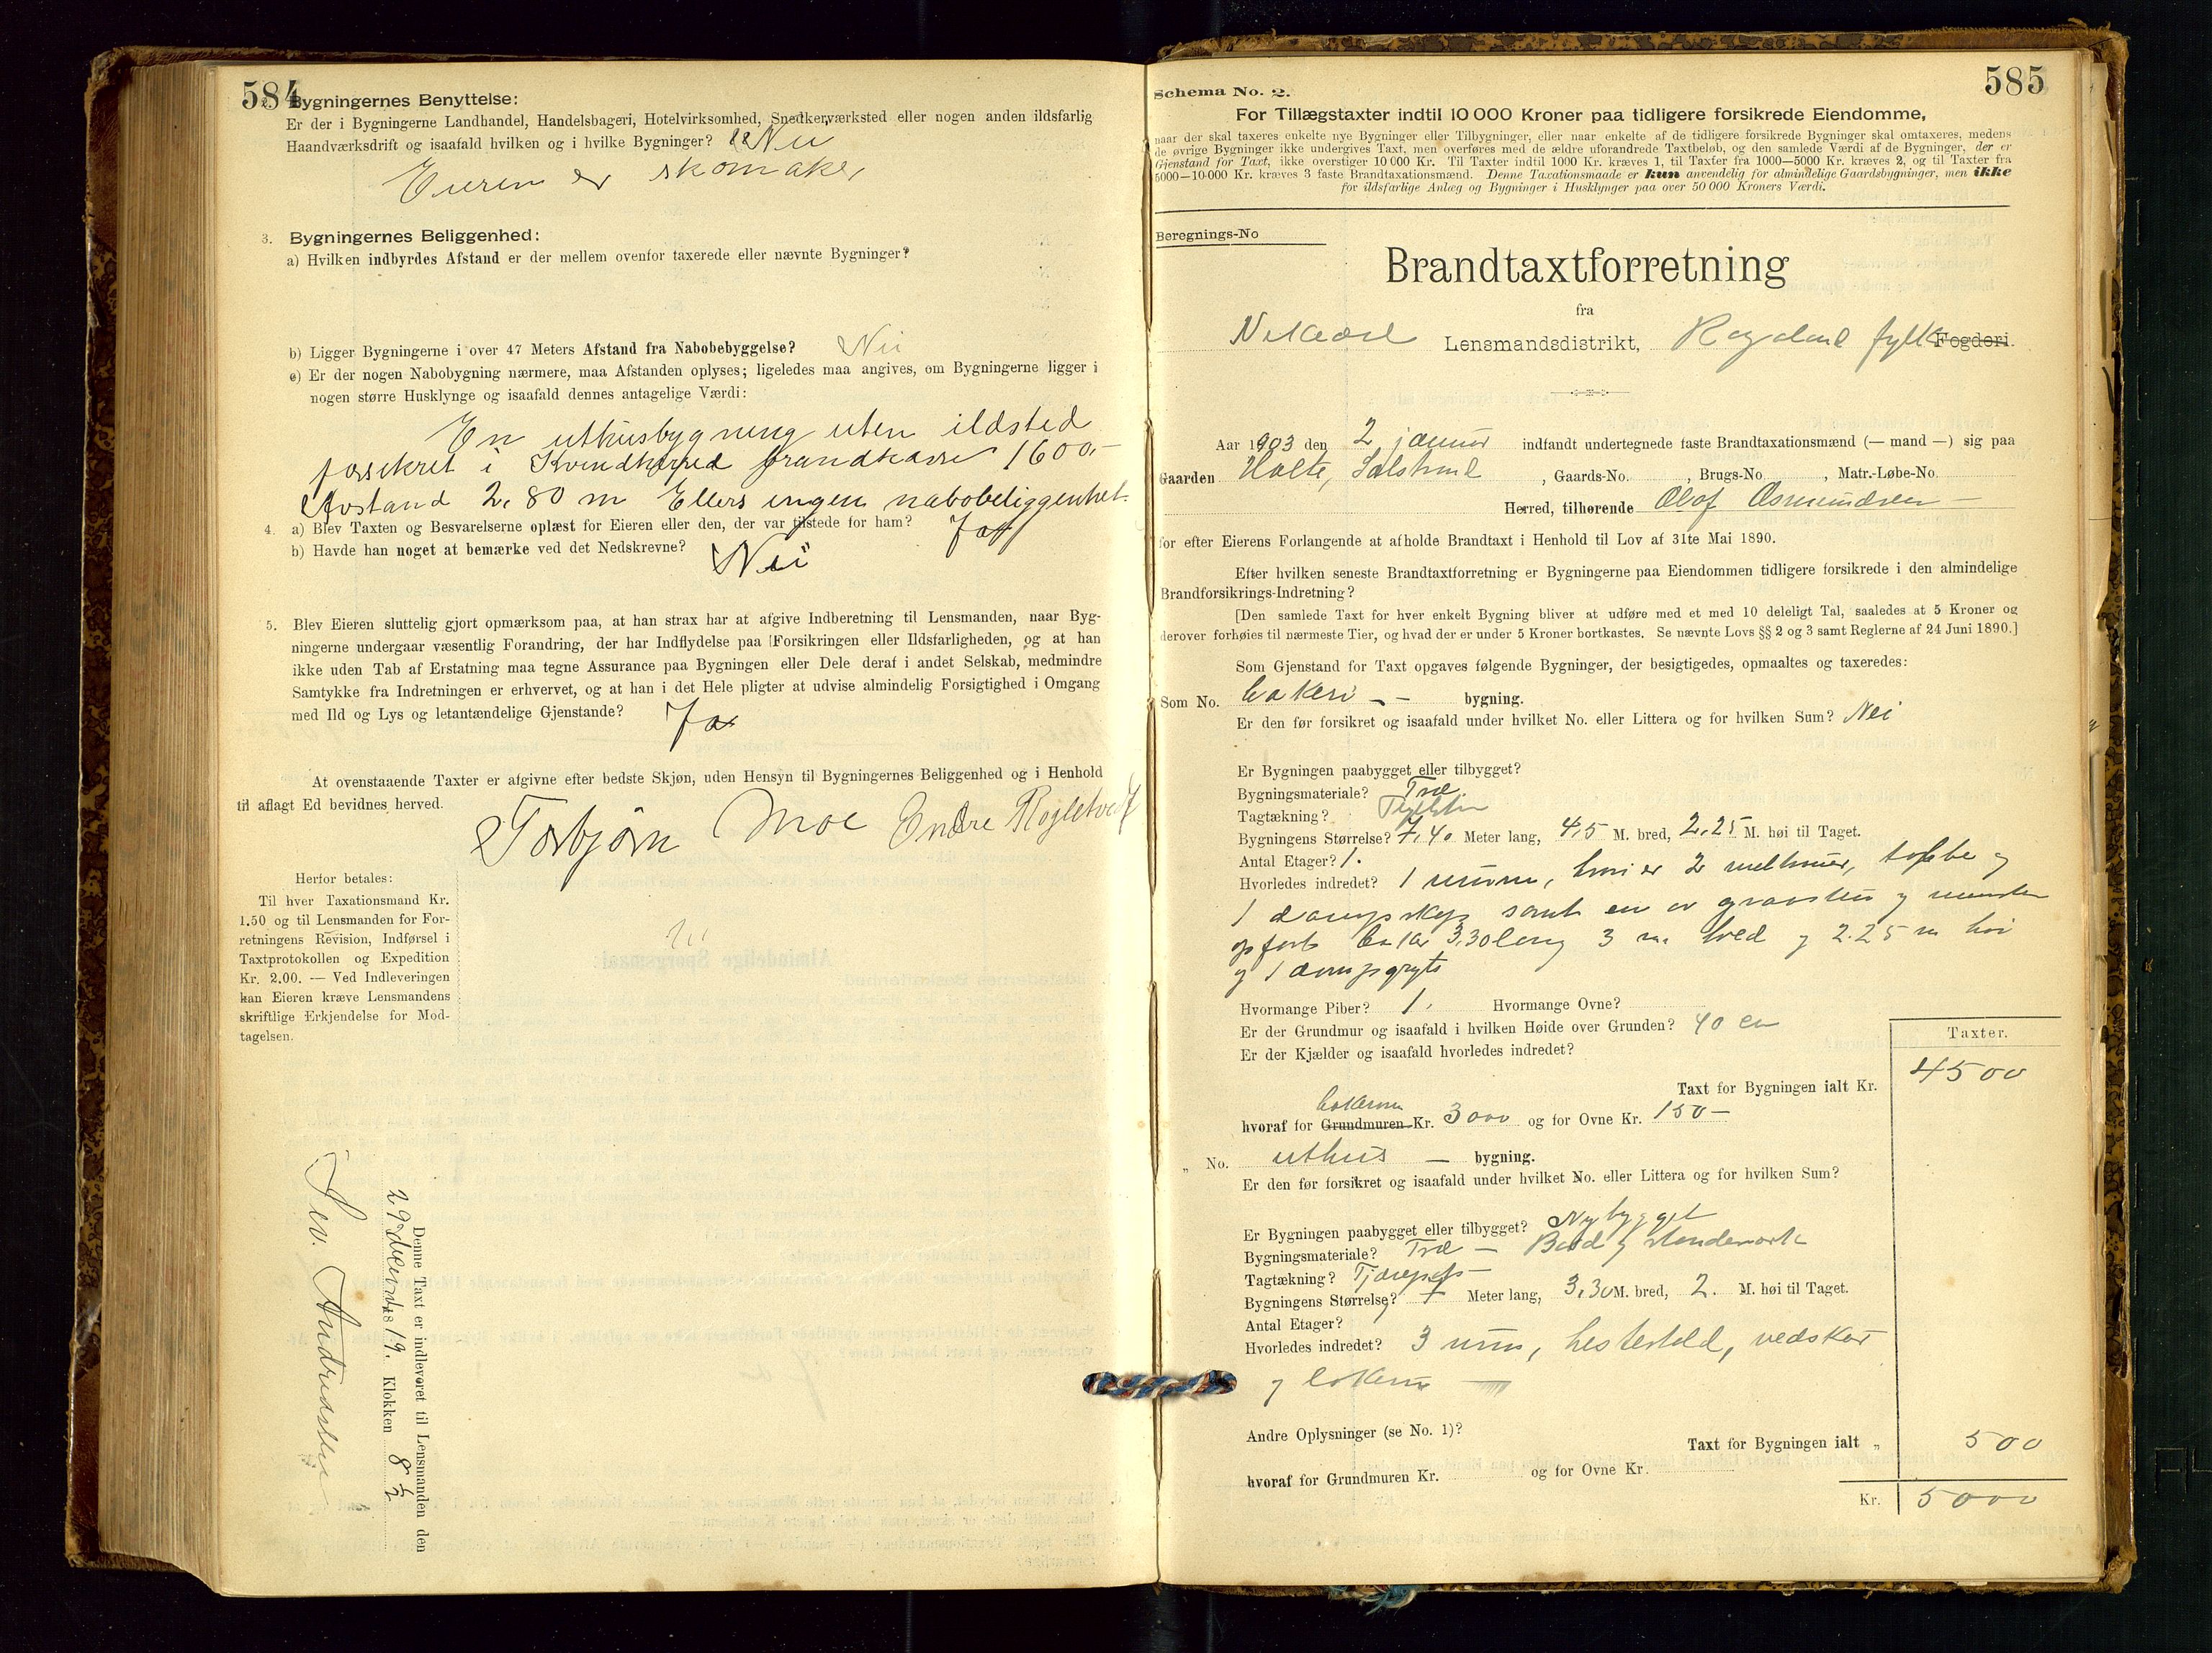 584
Bygningernes Benyttelse:
Er der i Bygningerne Landhandel, Handelsbageri, Hotelvirksomhed, Snedkerværksted eller nogen anden ildsfarlig
Haandværksdrift og isaafald hvilken og i hvilke Bygninger? Nei
Eieren er skomaker
3. Bygningernes Beliggenhed:
a) Hvilken indbyrdes Afstand er der mellem ovenfor taxerede eller nævnte Bygninger?
b) Ligger Bygningerne i over 47 Meters Afstand fra Nabobebyggelse? Nei
c) Er der nogen Nabobygning nærmere, maa Afstanden oplyses; ligeledes maa angives, om Bygningerne ligger i
nogen større Husklynge og isaafald dennes antagelige Værdi:
En uthusbygning uten ildsted
forsikret i brandkasse 1600.-
Avstand 2,80 m Ellers ingen nabobeliggenhet
4. a) Blev Taxten og Besvarelserne oplæst for Eieren eller den, der var tilstede for ham? Ja
b) Havde han noget at bemærke ved det Nedskrevne? Nei
5. Blev Eieren sluttelig gjort opmærksom paa, at han strax har at afgive Indberetning til Lensmanden, naar Byg-
ningerne undergaar væsentlig Forandring, der har Indflydelse paa Forsikringen eller Ildsfarligheden, og at han
ikke uden Tab af Erstatning maa tegne Assurance paa Bygningen eller Dele deraf i andet Selskab, medmindre
Samtykke fra Indretningen er erhvervet, og at han i det Hele pligter at udvise almindelig Forsigtighed i Omgang
med Ild og Lys og letantændelige Gjenstande? Ja
At ovenstaaende Taxter er afgivne efter bedste Skjøn, uden Hensyn til Bygningernes Beliggenhed og i Henhold
til aflagt Ed bevidnes herved.
Torbjørn Moe Endre
Herfor betales:
Til hver Taxationsmand Kr.
1.50 og til Lensmanden for For-
retningens Revision, Indførsel i
Taxtprotokollen og Expedition
Kr. 2.00. — Ved Indleveringen
kan Eieren kræve Lensmandens
skriftlige Erkjendelse for Mod-
tagelsen.
Denne Taxt er indleveret til Lensmanden den
29 19. Klokken 8 1/2
585
Schema No. 2.
For Tillægstaxter indtil 10 000 Kroner paa tidligere forsikrede Eiendomme,
naar der skal taxeres enkelte nye Bygninger eller Tilbygninger, eller naar enkelte af de tidligere forsikrede Bygninger skal omtaxeres, medens
de øvrige Bygninger ikke undergives Taxt, men overføres med de ældre uforandrede Taxtbeløb, og den samlede Værdi af de Bygninger, der er
Gjenstand for Taxt, ikke overstiger 10 000 Kr. Til Taxter indtil 1000 Kr. kræves 1, til Taxter fra 1000—5000 Kr. kræves 2, og til Taxter fra
5000—10·000 Kr. kræves 3 faste Brandtaxationsmænd. Denne Taxationsmaade er kun anvendelig for almindelige Gaardsbygninger, men ikke
for ildsfarlige Anlæg og Bygninger i Husklynger paa over 50 000 Kroners Værdi.
Beregnings-No
Brandtaxtforretning
fra
Lensmandsdistrikt, fylke Fogderi.
Aar 1903 den 2 januar indfandt undertegnede faste Brandtaxationsmænd (— mand —) sig paa
Gaarden Holte, , Gaards-No. , Brugs-No. , Matr.-Løbe-No.
Herred, tilhørende Olof Osmundsen —
for efter Eierens Forlangende at afholde Brandtaxt i Henhold til Lov af 31te Mai 1890.
Efter hvilken seneste Brandtaxtforretning er Bygningerne paa Eiendommen tidligere forsikrede i den almindelige
Brandforsikrings-Indretning?
[Den samlede Taxt for hver enkelt Bygning bliver at udføre med et med 10 deleligt Tal, saaledes at 5 Kroner og
derover forhøies til nærmeste Tier, og hvad der er under 5 Kroner bortkastes. Se nævnte Lovs §§ 2 og 3 samt Reglerne af 24 Juni 1890.]
Som Gjenstand for Taxt opgaves følgende Bygninger, der besigtigedes, opmaaltes og taxeredes:
Som No. bakeri - - bygning.
Er den før forsikret og isaafald under hvilket No. eller Littera og for hvilken Sum? Nei
Er Bygningen paabygget eller tilbygget?
Bygningsmateriale? Træ
Tagtækning?
Bygningens Størrelse? 7,40 Meter lang, 4,5 M. bred, 2,25 M. høi til Taget.
Antal Etager? 1.
Hvorledes indredet? 1 hvori er 2 og
1 dampskap samt en av graasten og
opført 3,30 lang 3 m bred og 2.25 m høi
og 1 dampgryte
Hvormange Piber? 1. Hvormange Ovne?
Er der Grundmur og isaafald i hvilken Høide over Grunden? 40 cm
Er der Kjælder og isaafald hvorledes indredet?
Taxter.
Taxt for Bygningen ialt Kr. 4500
hvoraf for Grundmuren Kr. 3000 og for Ovne Kr. 150 —
„ No. uthus — bygning.
Er den før forsikret og isaafald under hvilket No. eller Littera og for hvilken Sum?
Er Bygningen paabygget eller tilbygget? Nybygget
Bygningsmateriale? Træ — Bord og stenderverk
Tagtækning? Tjærepap
Bygningens Størrelse? 7 Meter lang, 3,30 M. bred, 2. M. høi til Taget.
Antal Etager?
Hvorledes indredet? 3 rum, hestestald, vedskur
og
Andre Oplysninger (se No. 1)?
Taxt for Bygningen ialt „ 500
hvoraf for Grundmuren Kr. og for Ovne Kr.
Kr. 5000